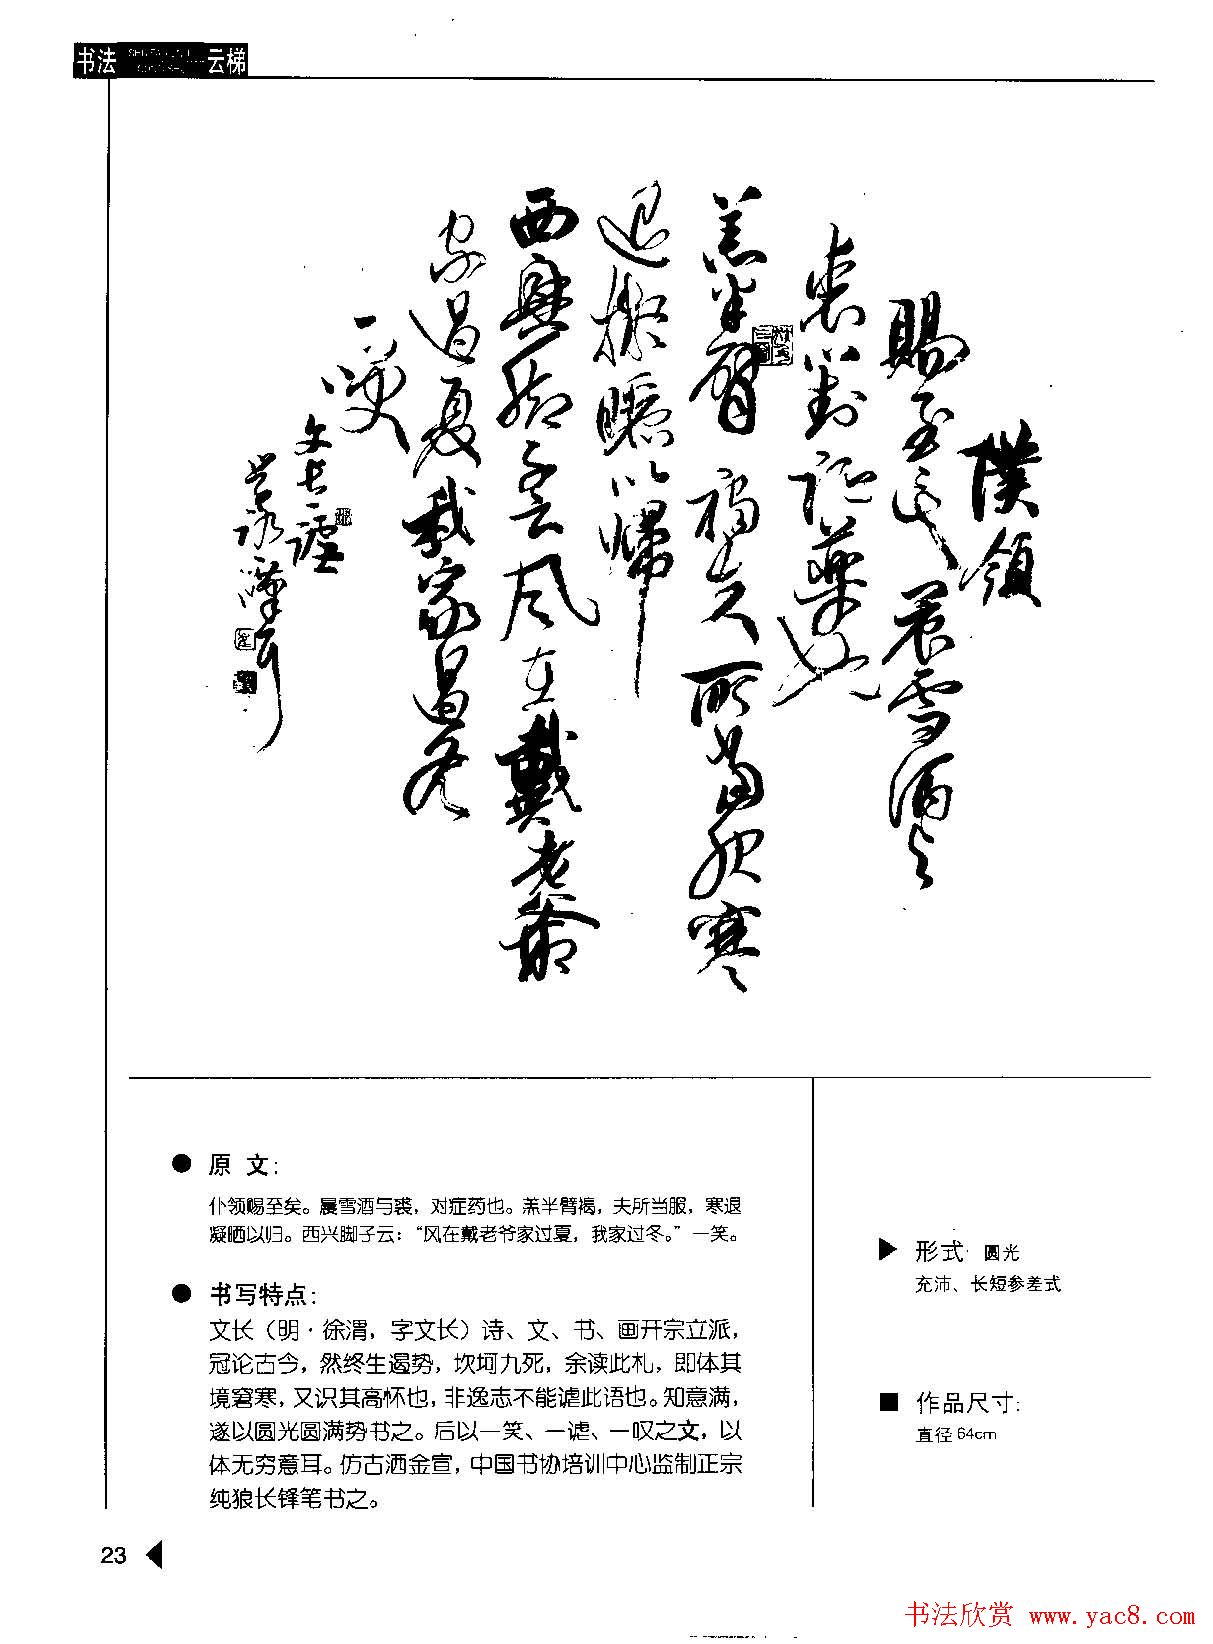 书法 云梯
僕領
賜至矣晨雪酒与
裘對証藥也
羔半臂褐夫所當服寒
退擬曬以歸
西興脚子云风在戴老爺
家過夏我家過冬
一笑
文长一謔
● 原 文:
仆领赐至矣。晨雪酒与裘，对症药也。羔半臂褐，夫所当服，寒退
凝晒以归。西兴脚子云：“风在戴老爷家过夏，我家过冬。”一笑。
● 书写特点:
文长（明·徐渭，字文长）诗、文、书、画开宗立派，
冠论古今，然终生遏势，坎坷九死，余读此札，即体其
境窘寒，又识其高怀也，非逸志不能谑此语也。知意满，
遂以圆光圆满势书之。后以一笑、一谑、一叹之文，以
体无穷意耳。仿古洒金宣，中国书协培训中心监制正宗
纯狼长锋笔书之。
▶ 形式: 圆光
充沛、长短参差式
■ 作品尺寸:
直径 64cm
23
书法欣赏 www.yac8.com